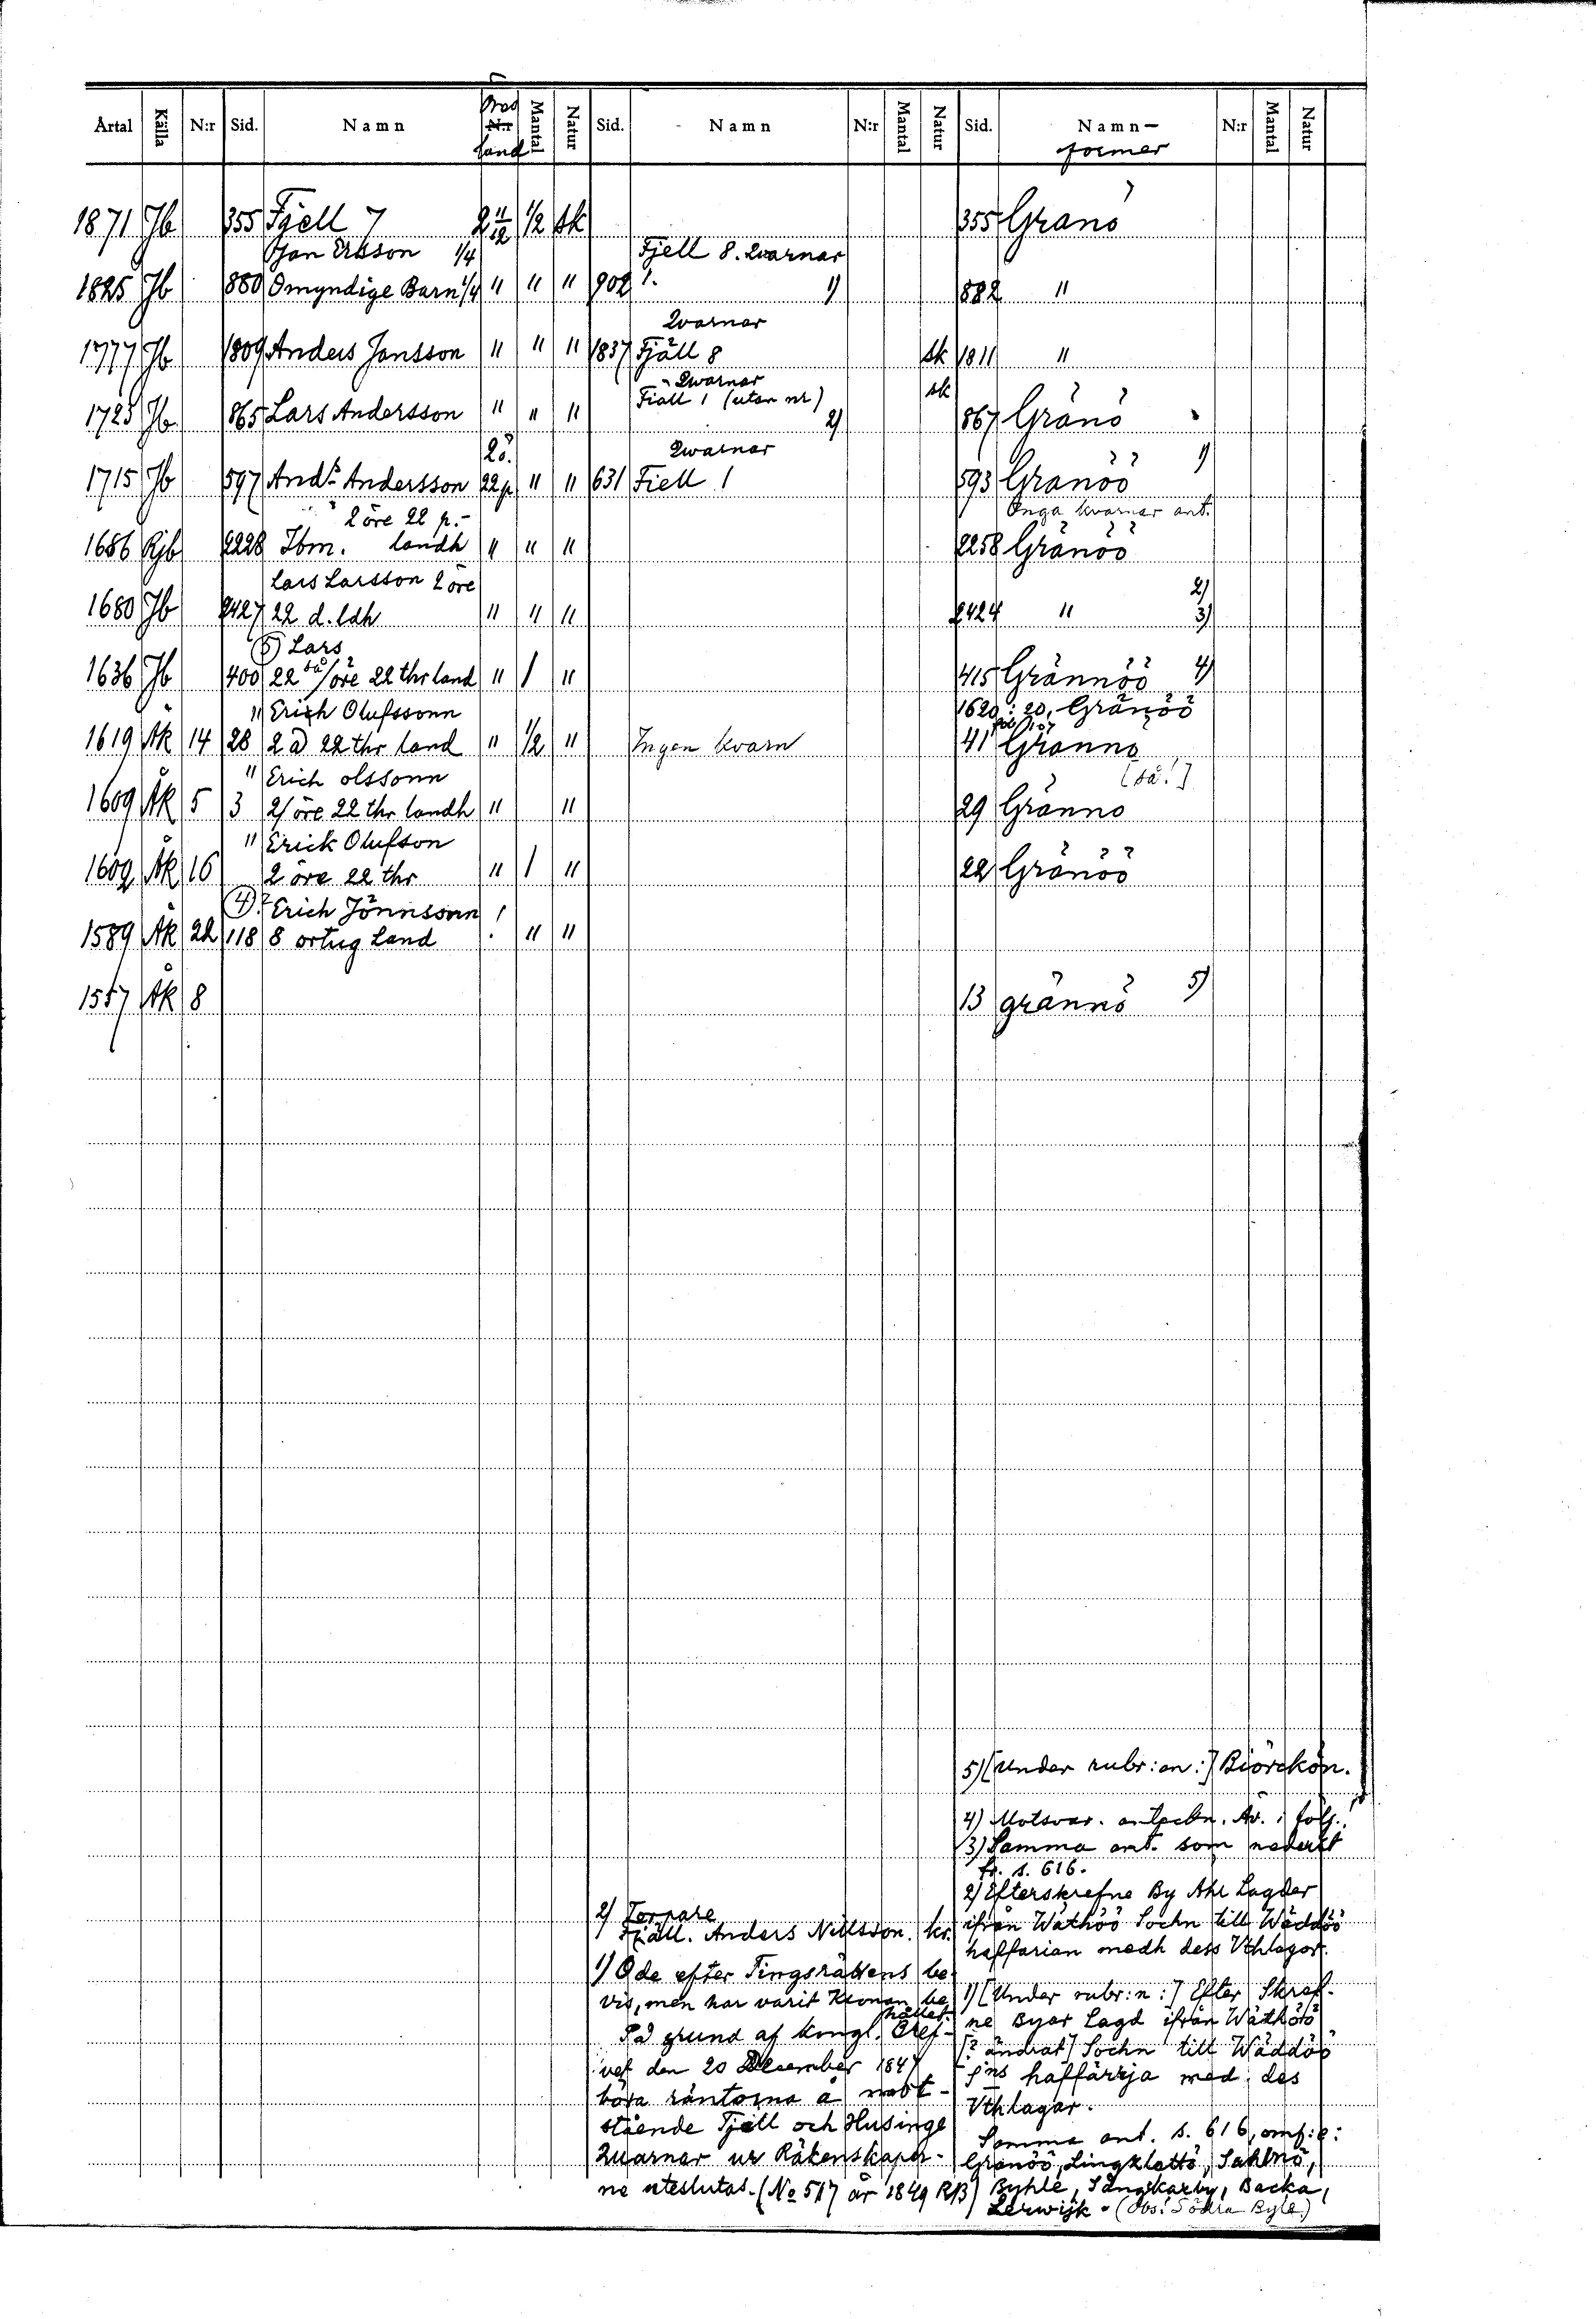 Årtal Källa N:r Sid. Namn N:r land Mantal Natur Sid. Namn N:r Mantal Natur Sid. Namn- N:r Mantal Natur
former
1871 Jb 355 Fjell 7 2 11/12 1/2 sk 355 Granö
Jan Ersson 1/4 Fjell 8. Qvarnar
1825 Jb 880 Omyndige Barn 1/4 " " " 902 1. 1) 882 "
Qvarnar
1777 Jb 1809 Anders Jansson " " " 1837 Fjäll 8 sk 1811 "
Qwarnar
Fiäll 1 (utan nr) sk
1725 Jb 865 Lars Andersson " " " 2) 867 Gränö
2ö. Qwarnar
1715 Jb 597 Andrs Andersson 22p " " 631 Fiell 1 593 Granöö 1)
2 öre 22 p.- Inga kvarnar ant.
1686 Rjb 2228 Ibm. landh " " " 2258 Gränöö
Lars Larsson 2 öre 2)
1680 Jb 2427 22 d. ldh " " " 2424 " 3)
5) Lars
1636 Jb 400 22 så/öre 22 thr land " 1 " 415 Grännöö 4)
" Erich Olufssonn 1620: 20, Gränöö
1619 Åk 14 28 2 ö 22 thr land " 1/2 " Ingen kvarn 41 Granno
" Erich olssonn [så!]
1609 Åk 5 3 2/ öre 22 thr landh " " 29 Gränno
" Erick Olufson
1602 Åk 16 2 öre 22 thr " 1 " 22 Gränöö
4) Erich Jönnsson !
1589 Åk 22 118 8 ortug Land . " "
1557 Åk 8 13 grännö 5)
5) [Under rubr:en:] Biörckön.
4) Motsvar. anteckn. Av. i följ.!
3) Samma ant. som nederst
fr. s. 616.
2) Efterskrefne By Ahr Lagder
ifrån Wäthöö Sochn till Wäddöö
haffarian medh dess Vthlagor.
1) [Under rubr:n:] Efter Skref-
ne Byar Lagd ifrån Wäthöö
[? ändrat] Sochn till Wäddöö
Sns haffärja med des
Vthlagar.
Samma ant. s. 616, omf:r:
Granöö, Lingslattö, Sahlnö,
Byhle, Sångkarby, Backa,
Lerwijk. (Obs! Södra Byle.)
2) Torpare
Fjäll. Anders Nillsson. kr.
1) Öde efter Tingsrättens be-
vis, men har varit Kronan be-
hållet.
På grund af kongl. Bref-
vet den 20 December 1847
böra räntorna å motstående
stående Fjell och Husinge
Quarnar ur Räkenskaper-
ne uteslutas. (No 517 år 1849 RB)